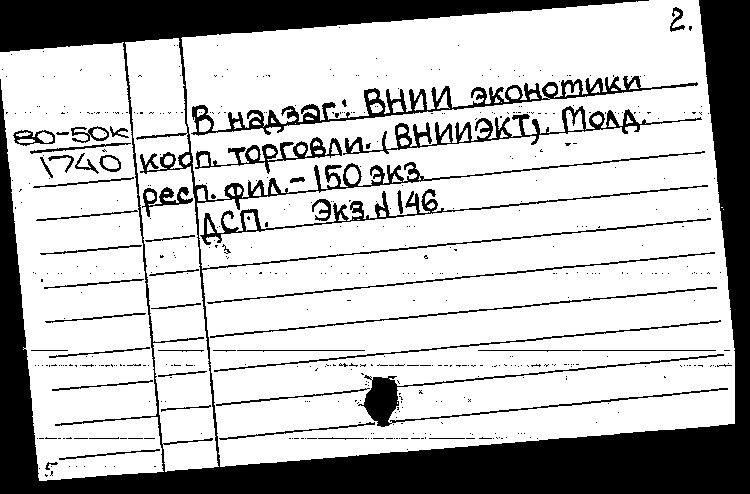 2.
В надзаг.: ВНИИ экономики
80-50к
1740
кооп. торговли. (ВНИИЭКТ). Молд.
респ. фил. - 150 экз.
ДСП. Экз. № 146.
5